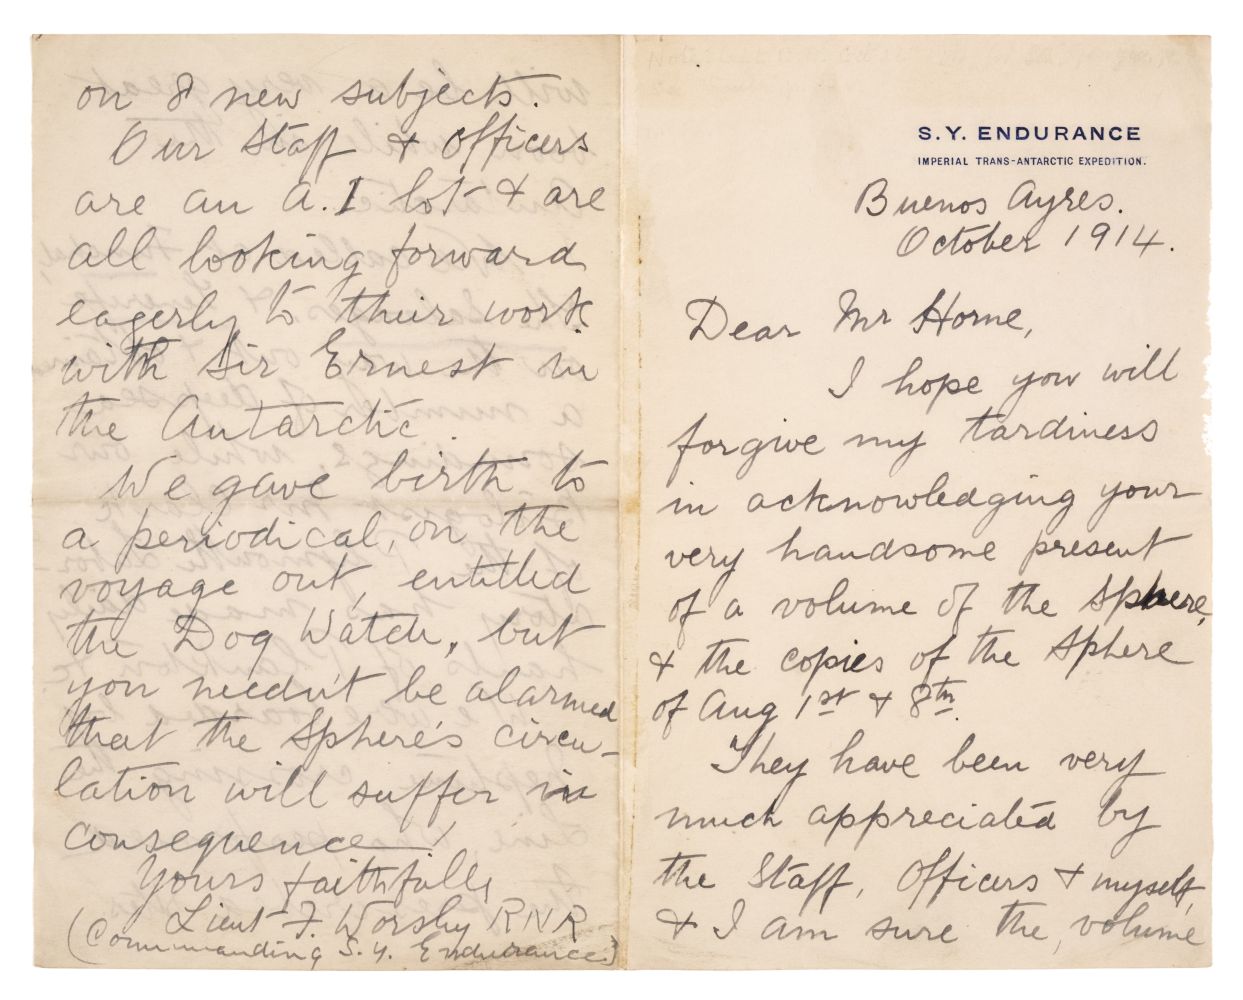 S.Y. ENDURANCE
IMPERIAL TRANS-ANTARCTIC EXPEDITION.
Buenos Ayres.
October 1914.
Dear Mr Horne,
I hope you will
forgive my tardiness
in acknowledging your
very handsome present
of a volume of the Sphere,
& the copies of the Sphere
of Aug 1st & 8th.
They have been very
much appreciated by
the Staff, Officers & myself,
& I am sure the, volume
on 8 new subjects.
Our Staff & Officers
are an A.1 lot & are
all looking forward
eagerly to their work
with Sir Ernest in
the Antarctic.
We gave birth to
a periodical, on the
voyage out, entitled
the Dog Watch, but
you needn't be alarmed
that the Sphere's circu-
lation will suffer in
consequence
Yours faithfully
Lieut F. Worsley RNR
(Commanding S.Y. Endurance.)